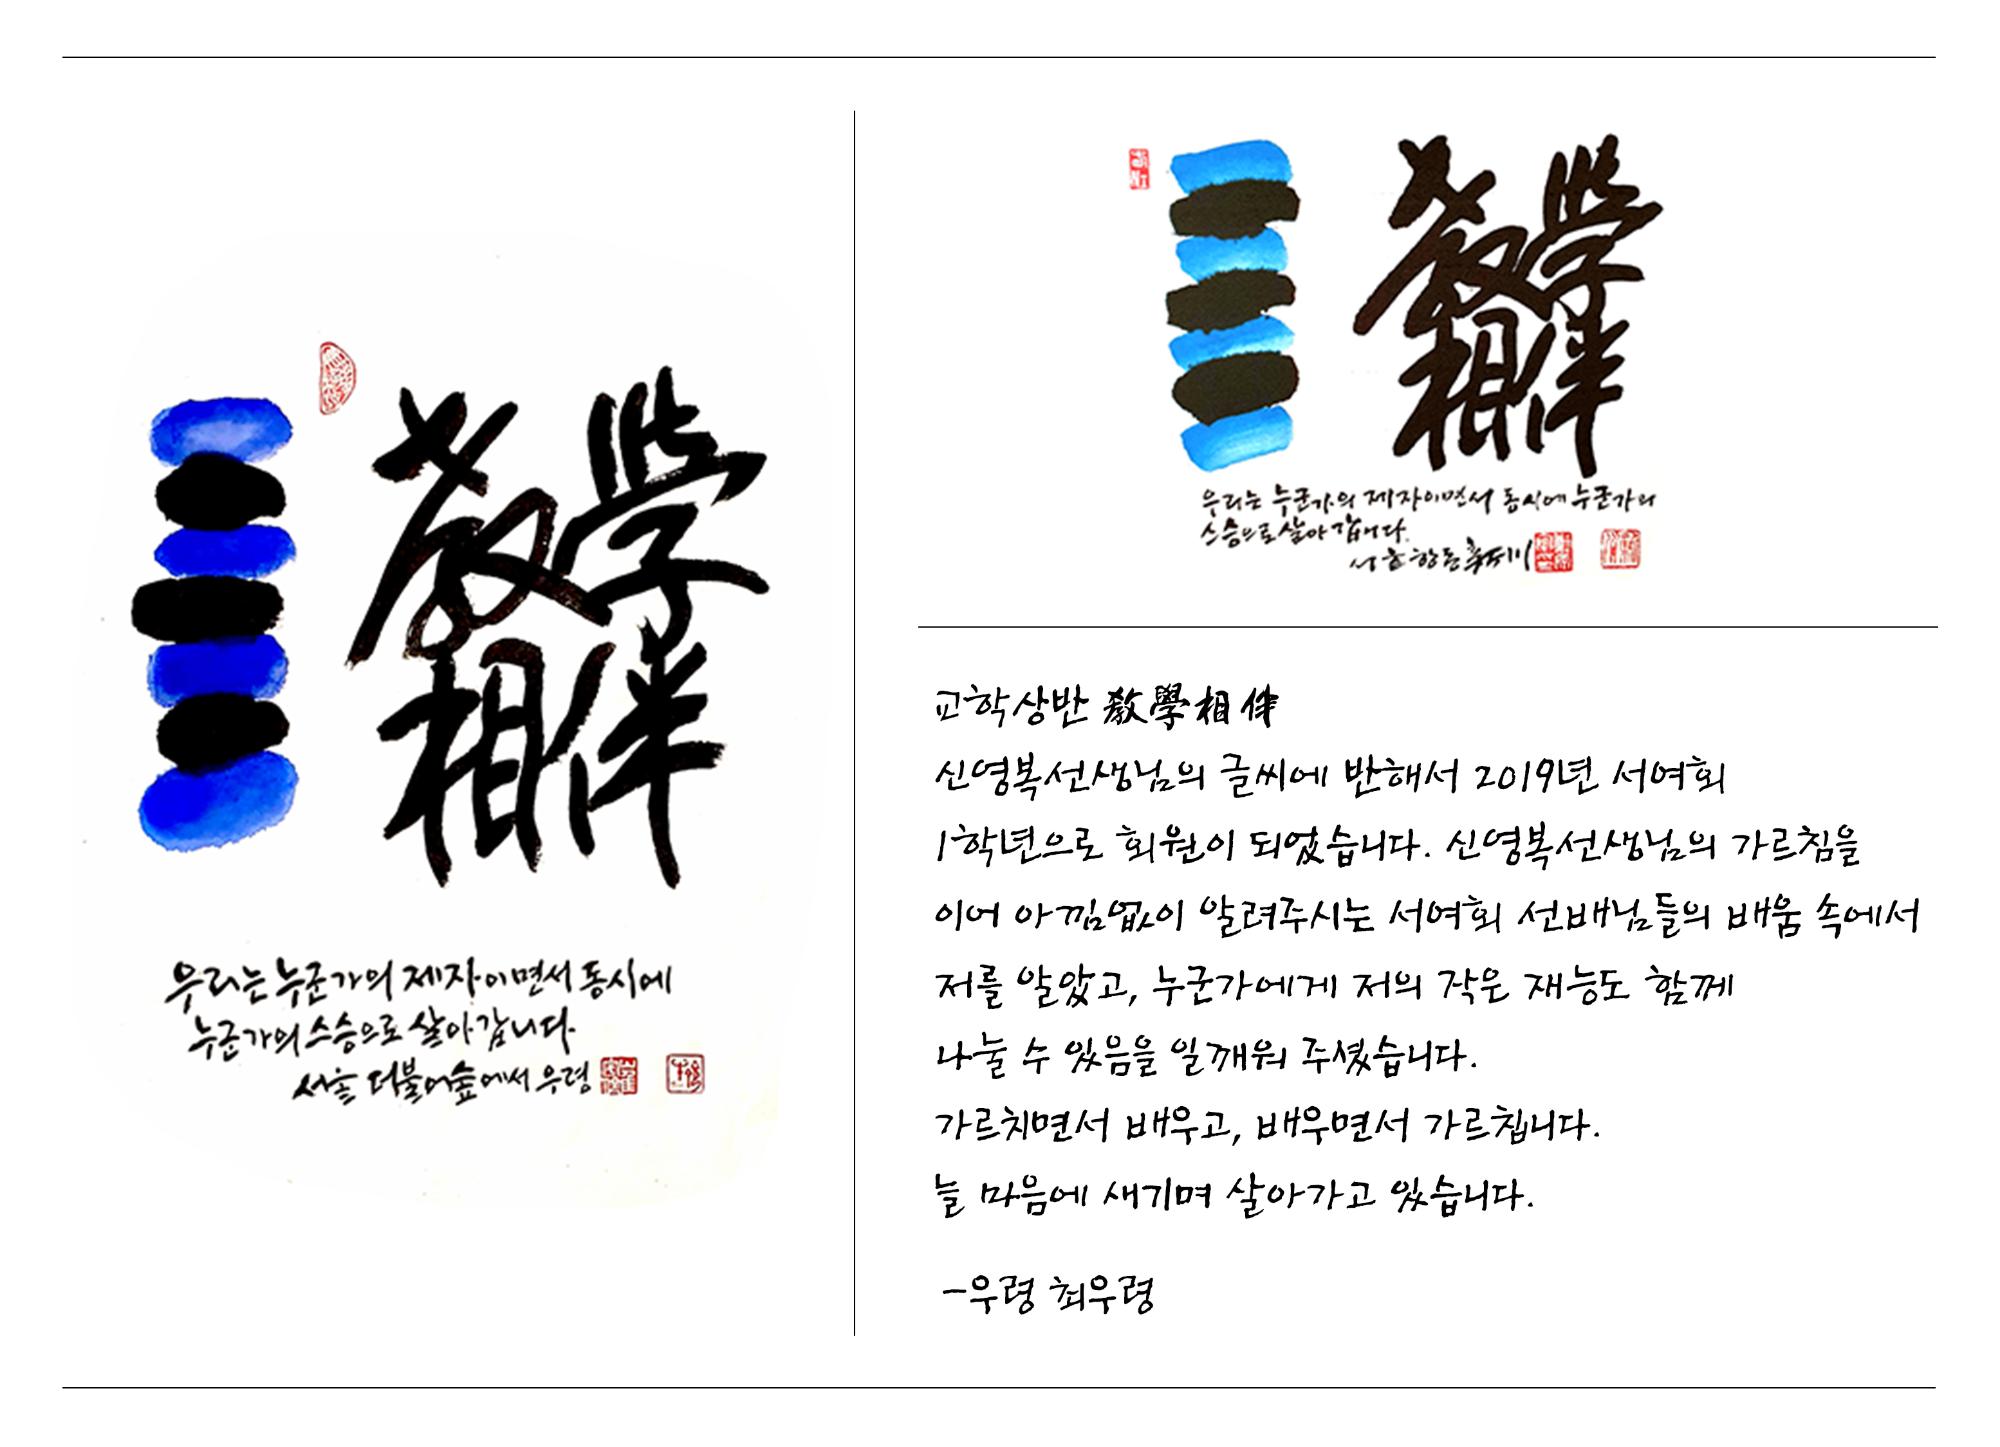 敎學
相伴
우리는 누군가의 제자이면서 동시에
누군가의 스승으로 살아갑니다.
서울 더불어숲에서 우령
敎學
相伴
우리는 누군가의 제자이면서 동시에 누군가의
스승으로 살아갑니다.
서울 항동
교학상반 敎學相伴
신영복선생님의 글씨에 반해서 2019년 서여회
1학년으로 회원이 되었습니다. 신영복선생님의 가르침을
이어 아낌없이 알려주시는 서여회 선배님들의 배움 속에서
저를 알았고, 누군가에게 저의 작은 재능도 함께
나눌 수 있음을 일깨워 주셨습니다.
가르치면서 배우고, 배우면서 가르칩니다.
늘 마음에 새기며 살아가고 있습니다.
-우령 최우령